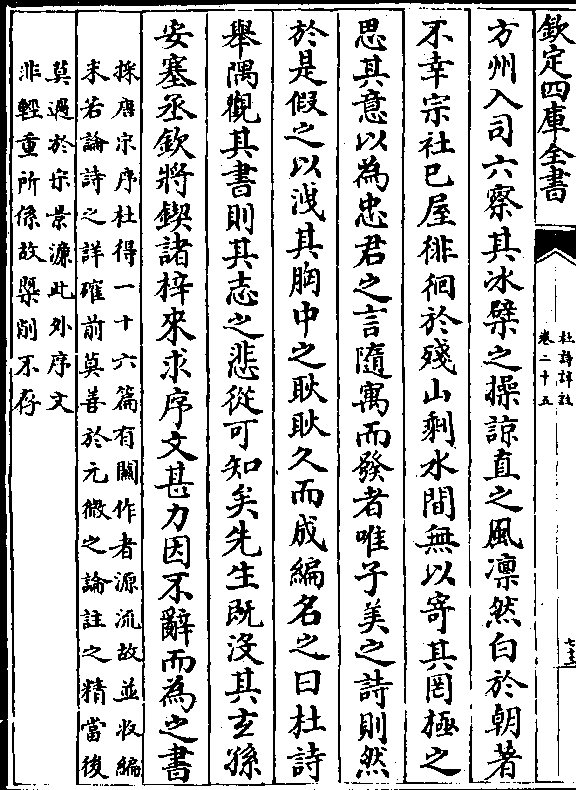 欽定四庫全書
杜詩詳註
卷二十五
方州入司六察其冰櫱之操諒直之風凛然白於朝著
不幸宗社已屋徘徊於殘山剩水間無以寄其罔極之
思其意以為忠君之言隨寓而發者唯子美之詩則然
於是假之以洩其胸中之耿耿久而成編名之曰杜詩
舉隅觀其書則其志之悲從可知矣先生既沒其玄孫
安塞丞欽將鍥諸梓來求序文甚力因不辭而為之書
採唐宋序杜得一十六篇有闗作者源流故並收編
末若論詩之詳確前莫善於元微之論註之精當後
莫過於宋景濂此外序文
非輕重所係故槩削不存